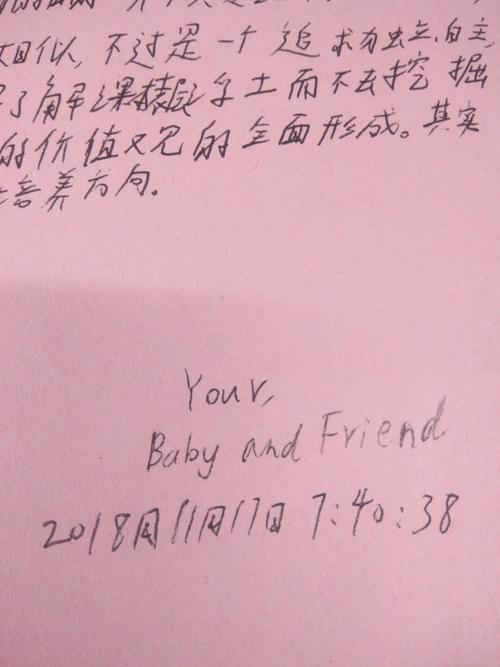 相似,不过是一个追求为独立、自主,
了解课 而不去挖掘
的价值又见的全面形成。其实
培养方向。
Your,
Baby and Friend
2018月11月17日 7:40:38